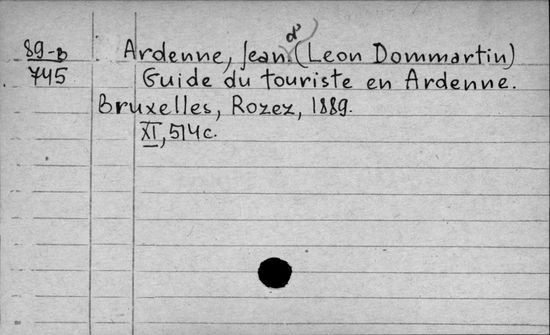 89-B
745
Ardenne, Jean d' (Leon Dommartin)
Guide du touriste en Ardenne.
Bruxelles, Rozez, 1889.
XI, 514 c.